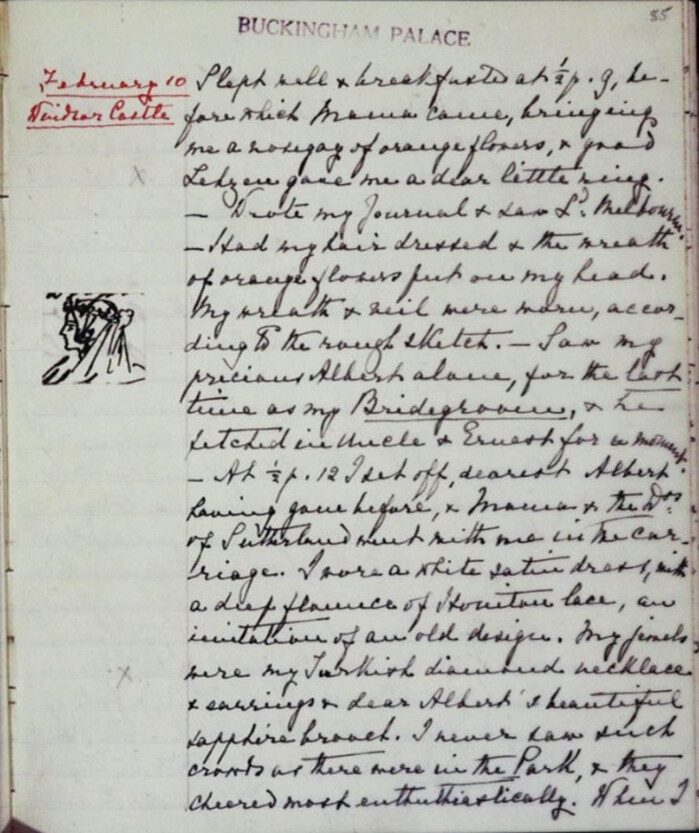 85
BUCKINGHAM PALACE
February 10
Windsor Castle
Slept well & breakfasted at ½ p. 9, be-
fore which Mama came, bringing
me a nosegay of orange flowers, & good
Lehzen gave me a dear little ring.
— Wrote my Journal & saw Ld. Melbourne.
— Had my hair dressed & the wreath
of orange flowers put on my head.
My wreath & veil were worn, accor-
ding to the rough sketch. — Saw my
precious Albert alone, for the last
time as my Bridegroom, & he
fetched in Uncle & Ernest for a moment.
— At ½ p. 12 I set off, dearest Albert
having gone before, & Mama & the Dss
of Sutherland went with me in the car-
riage. I wore a white satin dress, with
a deep flounce of Honiton lace, an
imitation of an old design. My jewels
were my Turkish diamond necklace
& earrings & dear Albert's beautiful
sapphire brooch. I never saw such
crowds as there were in the Park, & they
cheered most enthusiastically. When I